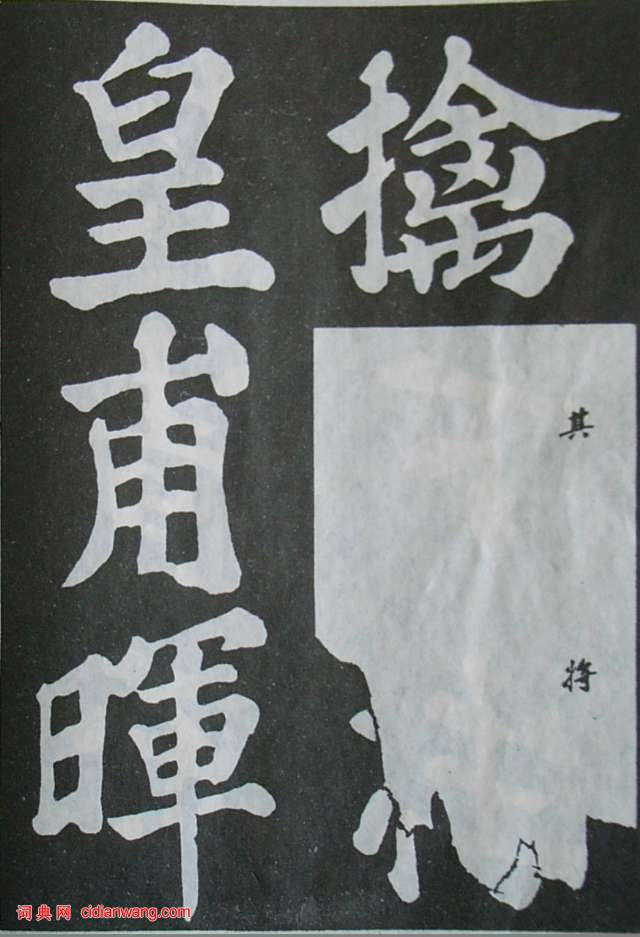 擒其将
皇甫暉
词典网 cidianwang.com